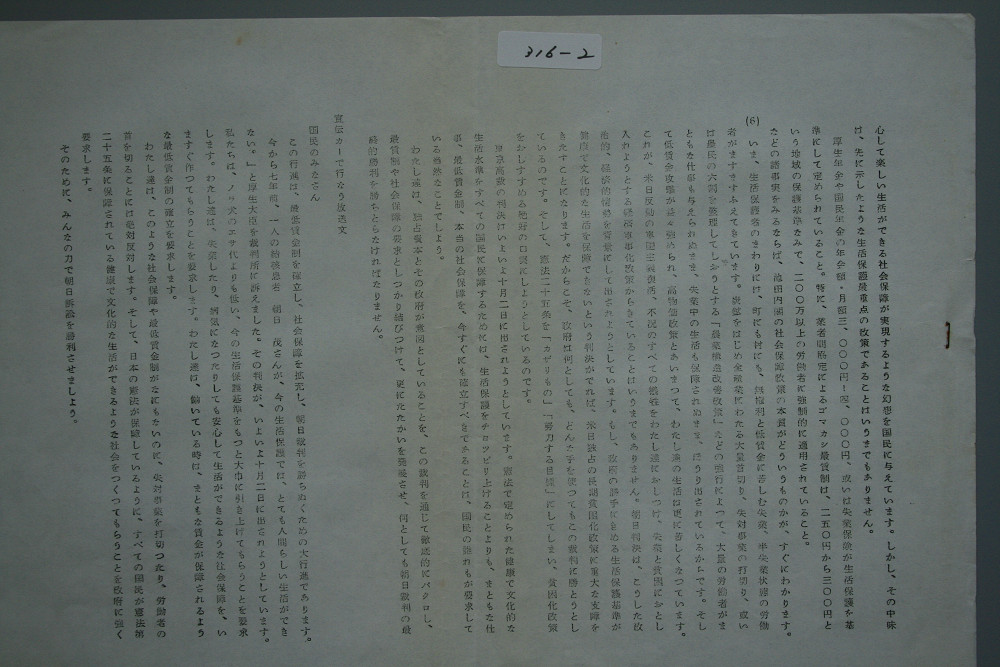 316-2
心して楽しい生活ができる社会保障が実現するような幻想を国民に与えています。しかし、その中味
は、先に示したような生活保護最重点の改策であることはいうまでもありません。
厚生年金や国民年金の年金額・月額三、〇〇〇円~四、〇〇〇円、或いは失業保険が生活保護を基
準にして定められていること。特に、業者間協定によるゴマカシ最賃制は、二五〇円から三〇〇円と
いう地域の保護基準なみで、二〇〇万以上の労働者に強制的に適用されていること。
などの諸事実をみるならば、池田内閣の社会保障政策の本質がどういうものかが、すぐにわかります。
(6)
いま、生活保護者のまわりには、町にも村にも、無権利と低賃金に苦しむ失業、半失業状態の労働
者がますますふえてきています。炭鉱をはじめ金融業にわたる大量首切り、失対事業の打切り、或い
は農民の六割を整理してしまおうとする「農業構造改善政策」などの強行によつて、大量の労働者がま
ともな仕事も与えられぬまま、失業中の生活も保障されぬまま、ほうり出されているからです。そし
て低賃金攻撃が益々強められ、高物価政策とあいまつて、わたし達の生活は更に苦しくなつています。
これが、米日反動の軍国主義復活、不況のすべての犠牲をわたし達におしつけ、失業と貧困におとし
入れようとする経済軍事化政策からきていることはいうまでもありません。朝日判決は、こうした政
治的、経済的情勢を背景にして出されようとしています。もし、政府の勝手にきめる生活保護基準が
健康で文化的な生活を保障できないという判決がでれば、米日独占の長期貧困化政策に重大な支障を
きたすことになります。だからこそ、政府は何としても、どんな手を使つてもこの裁判に勝とうとし
ているのです。そして、憲法二十五条を「カザリもの」「努力する目標」にしてしまい、貧困化政策
をおしすすめる絶好の口実にしようとしているのです。
東京高裁の判決はいよいよ十月二日に出されようとしています。憲法で定められた健康で文化的な
生活水準をすべての国民に保障するためには、生活保護をチヨツピリ上げることよりも、まともな仕
事、最低賃金制、本当の社会保障を、今すぐにも確立すべきであることは、国民の誰れもが要求して
いる当然なことでしよう。
わたし達は、独占資本とその政府が意図としていることを、この裁判を通じて徹底的にバクロし、
最賃制や社会保障の要求としつかり結びつけて、更にたたかいを発展させ、何としても朝日裁判の最
終的勝利を勝ちとらなければなりません。
宣伝カーで行なう放送文
国民のみなさん
この行進は、最低賃金制を確立し、社会保障を拡充し、朝日裁判を勝ちぬくための大行進であります。
今から七年前、一人の結核患者 朝日 茂さんが、今の生活保護では、とても人間らしい生活ができ
ない。」と厚生大臣を裁判所に訴えました。その判決が、いよいよ十月二日に出されようとしています。
私たちは、ノラ犬のエサ代よりも低い、今の生活保護基準をもつと大巾に引き上げてもらうことを要求
します。わたし達は、失業したり、病気になつたりしても安心して生活ができるような社会保障を、い
ますぐ作つてもらうことを要求します。わたし達は、働いている時は、まともな賃金が保障されるよう
な最低賃金制の確立を要求します。
わたし達は、このような社会保障や最低賃金制がなにもないのに、失対事業を打切つたり、労働者の
首を切ることには絶対反対します。そして、日本の憲法が保障しているように、すべての国民が憲法第
二十五条に保障されている健康で文化的な生活ができるような社会をつくつてもらうことを政府に強く
要求します。
そのために、みんなの力で朝日訴訟を勝利させましよう。